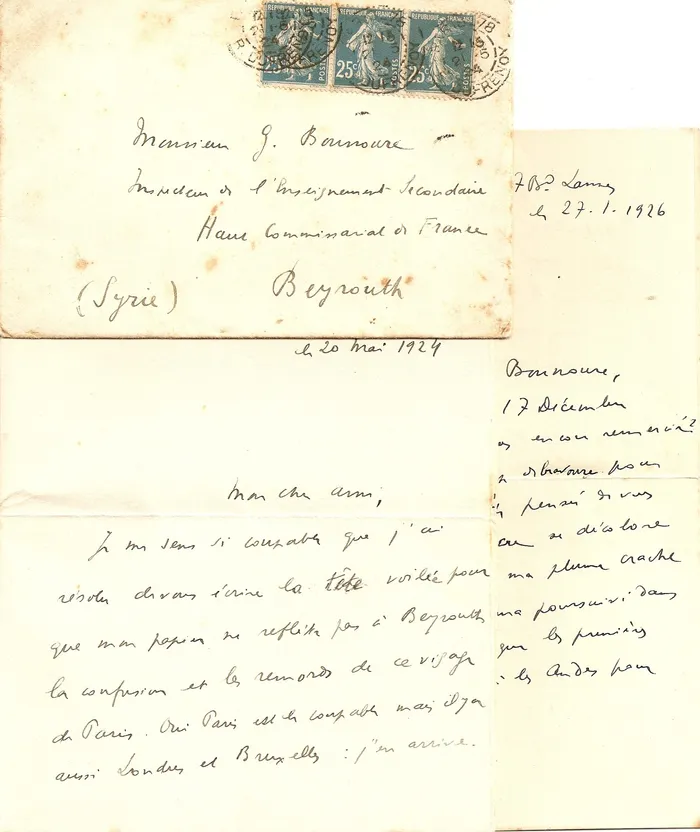 REPUBLIQUE FRANÇAISE
REPUBLIQUE FRANÇAISE
REPUBLIQUE FRANÇAISE
25c POSTES
25c POSTES
25c POSTES
DUFRENOY
Monsieur G. Bounoure
Inspecteur de l'Enseignement Secondaire
Haut Commissariat de France
Beyrouth
(Syrie)
le 20 Mai 1924
Mon cher ami,
Je me sens si coupable que j'ai
résolu de vous écrire la tête voilée pour
que mon papier ne reflète pas à Beyrouth
la confusion et les remords de ce visage
de Paris. Oui Paris est le coupable mais il y a
aussi Londres et Bruxelles : j'en arrive.
7 Bd Lannes
le 27.1.1926
Bounoure,
17 Décembre
encore remercié
pour
pensé de vous
se décolore
ma plume crache
ma poursuivi dans
que les premières
les Andes pour